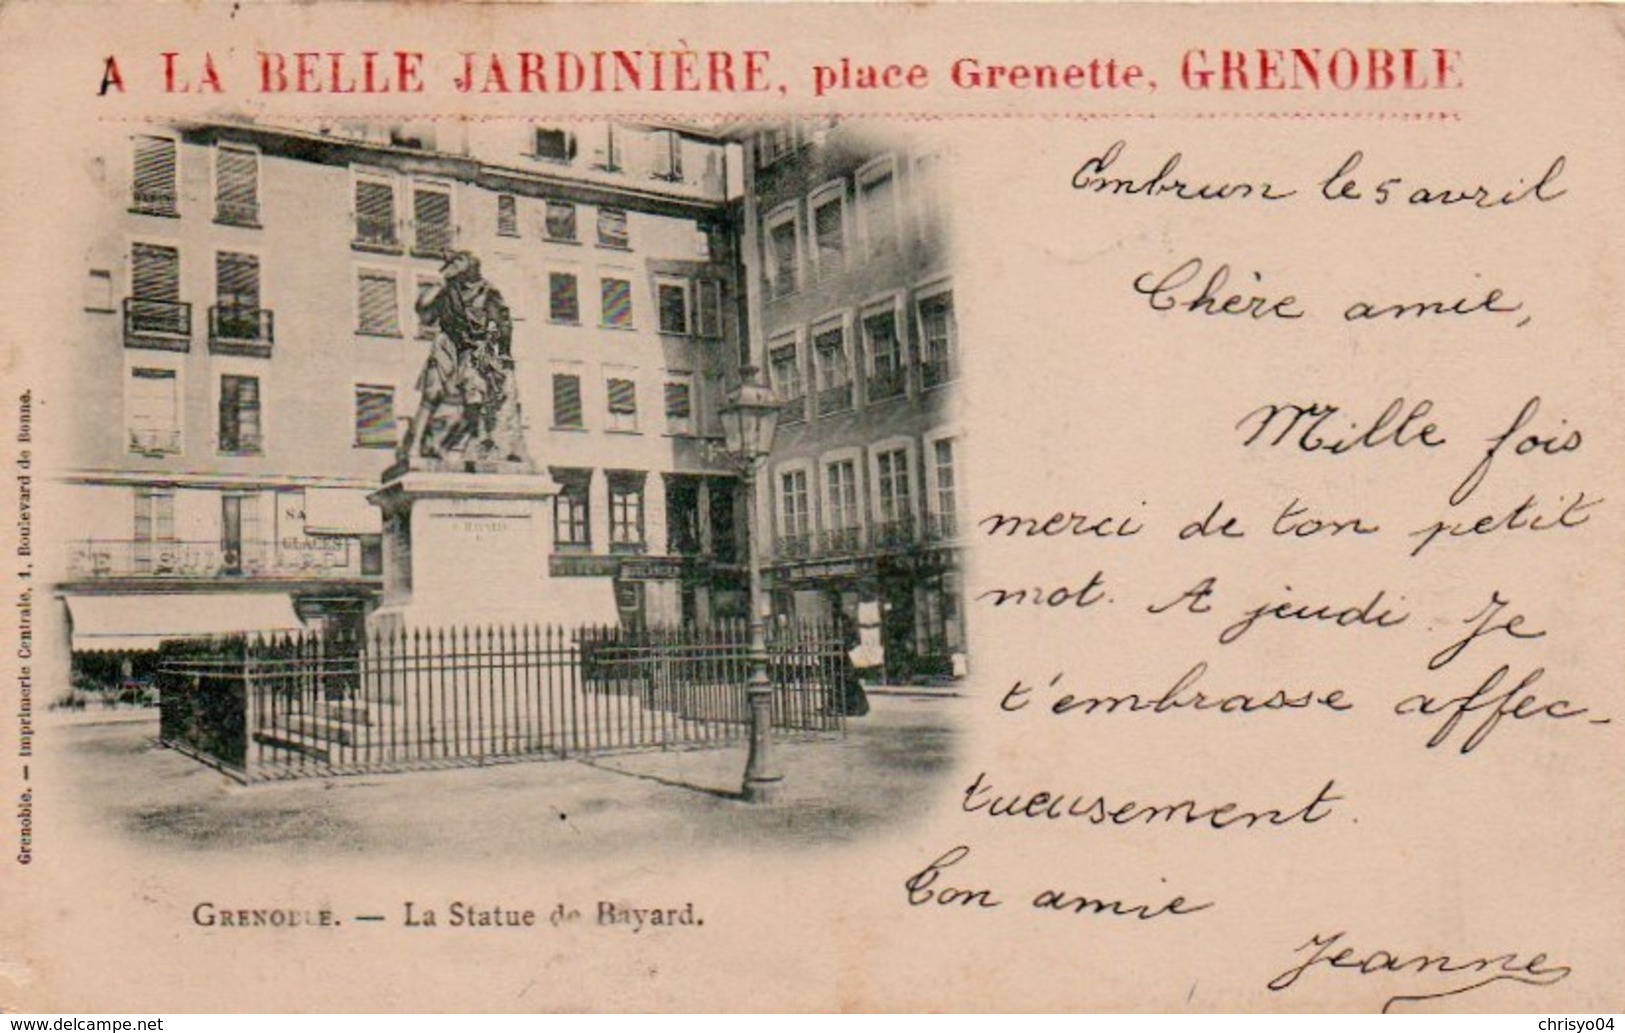 A LA BELLE JARDINIÈRE, place Grenette, GRENOBLE
Embrun le 5 avril
Chère amie,
Mille fois
merci de ton petit
mot. A jeudi. Je
t'embrasse affec-
tueusement.
Ton amie
Jeanne
SA
GLACES
A BAYARD
GRENOBLE. — La Statue de Bayard.
Grenoble. — Imprimerie Centrale, 1, Boulevard de Bonne.
delcampe.net
chrisyo04